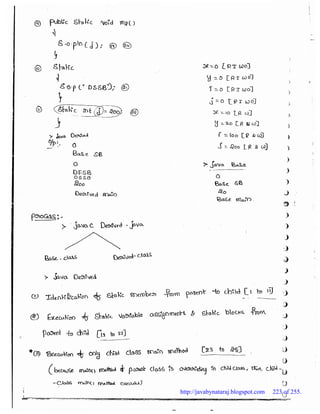 public static void m2()
{
S.o.pln(j);
}
static
{
S.o.p("DSSB");
}
static int j = 200
}
x=0 [RIWO]
y=0 [RIWO]
i=0 [RIWO]
j=0 [RIWO]
> java Derived
O/p:
0
Base SB
0
DFSB
DSSB
200
Derived main
i=100 [R & W]
j=200 [R & W]
> java Base
0
Base SB
20
Base main
process:-
> javac Derived.java
Base.class
Derived.class
> java Derived
(1) Identification of static members from parent to child [1 to 11]
(2) Execution of static variable assignments & static blocks from
parent to child [12 to 22]
*(3) Execution of only child class main method [23 to 25]
(because main() method of parent class is overriding in child class, then child
-class main() method executed)
http://javabynataraj.blogspot.com 223 of 255.